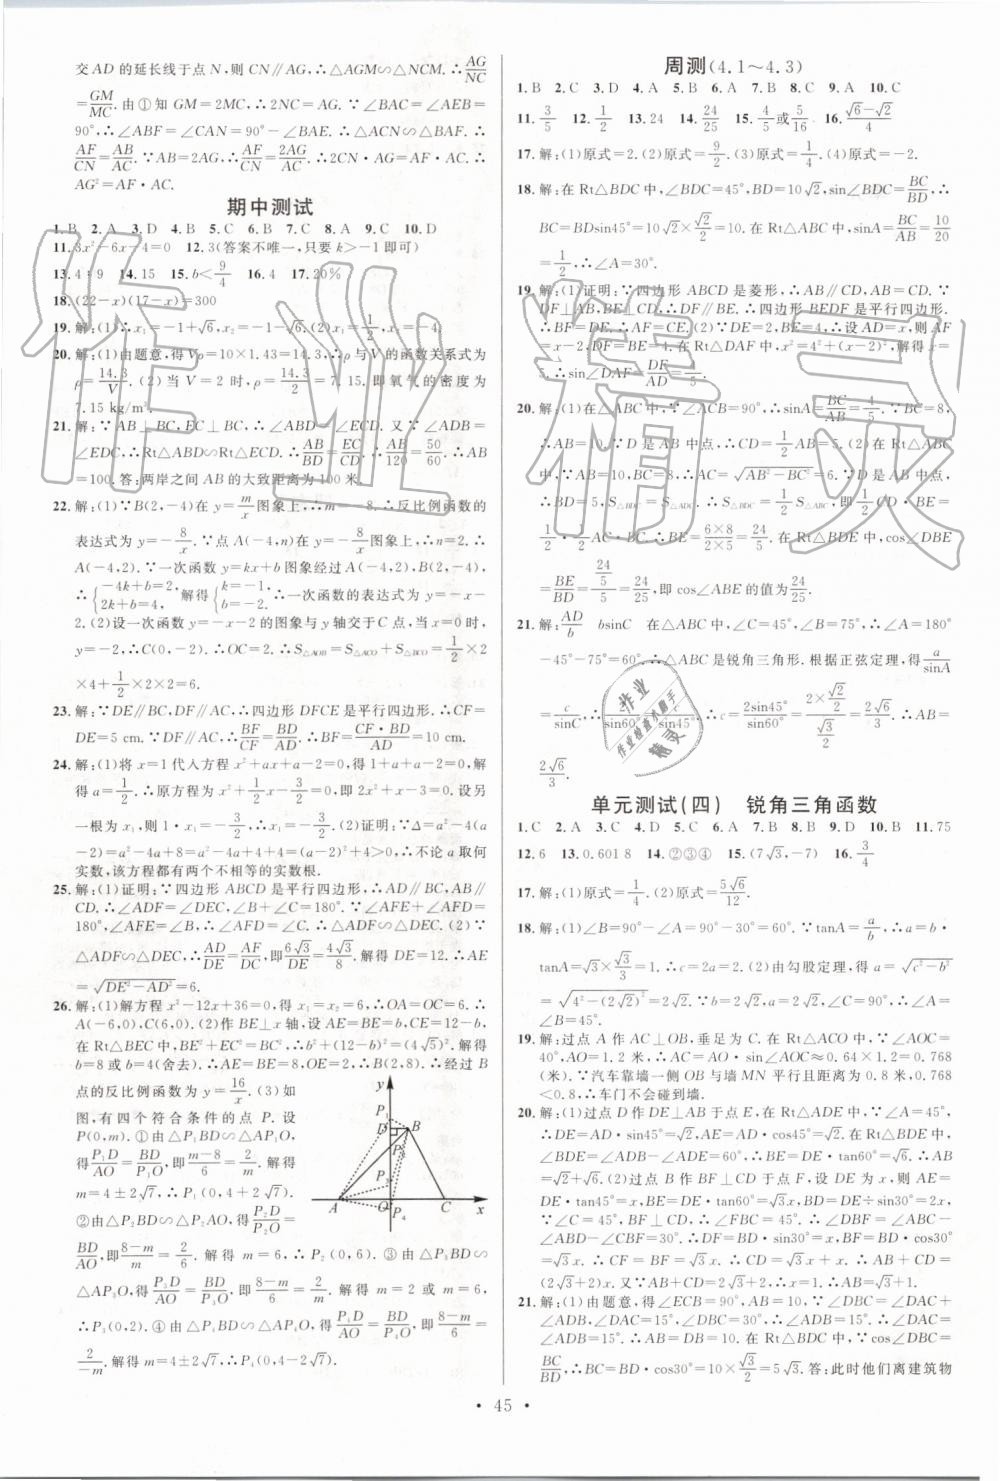 交AD的延长线于点N,则CN∥AG,∴△AGM∽△NCM.∴AG/NC
=GM/MC.由①知GM=2MC,∴2NC=AG.∵∠BAC=∠AEB=
90°,∴∠ABF=∠CAN=90°-∠BAE.∴△ACN∽△BAF.∴
AF/CN=AB/AC.∵AB=2AG,∴AF/CN=2AG/AC.∴2CN·AG=AF·AC.∴
AG²=AF·AC.
期中测试
1.B 2.A 3.D 4.B 5.C 6.B 7.C 8.A 9.C 10.D
11.3x²-6x-4=0 12.3(答案不唯一,只要k>-1即可)
13.4:9 14.15 15.b<9/4 16.4 17.20%
18.(22-x)(17-x)=300
19.解:(1)∴x₁=-1+√6,x₂=-1-√6.(2)x₁=1/2,x₂=-4.
20.解:(1)由题意,得Vρ=10×1.43=14.3,∴ρ与V的函数关系式为
ρ=14.3/V.(2)当V=2时,ρ=14.3/2=7.15,即氧气的密度为
7.15 kg/m³.
21.解:∵AB⊥BC,EC⊥BC,∴∠ABD=∠ECD.又∵∠ADB=
∠EDC,∴Rt△ABD∽Rt△ECD.∴AB/BD=EC/CD.∴AB/120=50/60.∴
AB=100.答:两岸之间AB的大致距离为100米.
22.解:(1)∵B(2,-4)在y=m/x图象上,∴m=-8.∴反比例函数的
表达式为y=-8/x.∵点A(-4,n)在y=-8/x图象上,∴n=2.∴
A(-4,2).∵一次函数y=kx+b图象经过A(-4,2),B(2,-4),
∴{-4k+b=2, 2k+b=-4, 解得{k=-1, b=-2. ∴一次函数的表达式为y=-x-
2.(2)设一次函数y=-x-2的图象与y轴交于C点,当x=0时,
y=-2,∴C(0,-2).∴OC=2.∴S△AOB=S△ACO+S△BCO=1/2×2
×4+1/2×2×2=6.
23.解:∵DE∥BC,DF∥AC,∴四边形DFCE是平行四边形.∴CF=
DE=5 cm.∵DF∥AC,∴BF/CF=BD/AD.∴BF=CF·BD/AD=10 cm.
24.解:(1)将x=1代入方程x²+ax+a-2=0,得1+a+a-2=0,解得
a=1/2.∴原方程为x²+1/2x-3/2=0.设另
一根为x₁,则1·x₁=-3/2,x₁=-3/2.(2)证明:∵Δ=a²-4(a-2)
=a²-4a+8=a²-4a+4+4=(a-2)²+4>0,∴不论a取何
实数,该方程都有两个不相等的实数根.
25.解:(1)证明:∵四边形ABCD是平行四边形,∴AD∥BC,AB∥
CD.∴∠ADF=∠DEC,∠B+∠C=180°.∵∠AFE+∠AFD=
180°,∠AFE=∠B,∴∠AFD=∠C.∴△ADF∽△DEC.(2)∵
△ADF∽△DEC,∴AD/DE=AF/DC,即6√3/DE=4√3/8.解得DE=12.∴AE
=√DE²-AD²=6.
26.解:(1)解方程x²-12x+36=0,得x₁=x₂=6.∴OA=OC=6.∴
A(-6,0),C(6,0).(2)作BE⊥x轴,设AE=BE=b,CE=12-b,
在Rt△BEC中,BE²+EC²=BC²,∴b²+(12-b)²=(4√5)².解得
b=8或b=4(舍去).∴AE=BE=8,OE=2.∴B(2,8).∴经过B
点的反比例函数为y=16/x.(3)如
图,有四个符合条件的点P.设
P(0,m).①由△P₁BD∽△AP₁O,
得P₁D/AO=BD/P₁O,即m-8/6=2/m.解得
m=4±2√7,∴P₁(0,4+2√7).
②由△P₂BD∽△AP₂O,得P₂D/P₂O=
BD/AO,即8-m/m=2/6.解得m=6,∴P₂(0,6).③由△P₃BD∽
△AP₃O,得P₃D/AO=BD/P₃O,即8-m/6=2/m.解得m=2或m=6,
∴P₃(0,2).④由△P₄BD∽△AP₄O,得P₄D/AO=BD/P₄O,即8-m/6=
2/-m.解得m=4±2√7,∴P₄(0,4-2√7).
y P₁ D B P₂ P₃ A O P₄ C x
周测(4.1～4.3)
1.B 2.C 3.D 4.A 5.B 6.A 7.B 8.C 9.A 10.C
11.3/5 12.1/2 13.24 14.24/25 15.4/5或5/16 16.√6-√2/4
17.解:(1)原式=2.(2)原式=9/2.(3)原式=1/4.(4)原式=-2.
18.解:在Rt△BDC中,∠BDC=45°,BD=10√2,sin∠BDC=BC/BD,∴
BC=BDsin45°=10√2×√2/2=10.在Rt△ABC中,sinA=BC/AB=10/20
=1/2,∴∠A=30°.
19.解:(1)证明:∵四边形ABCD是菱形,∴AB∥CD,AB=CD.∵
DF⊥AB,BE⊥CD,∴DF∥BE.∴四边形BEDF是平行四边形.
∴BF=DE.∴AF=CE.(2)∵DE=2,BE=4,∴设AD=x,则AF
=x-2,DF=BE=4.在Rt△DAF中,x²=4²+(x-2)².解得x=
5.∴sin∠DAF=DF/AD=4/5.
20.解:(1)在△ABC中,∵∠ACB=90°,∴sinA=BC/AB=4/5.∵BC=8,
∴AB=10.∵D是AB中点,∴CD=1/2AB=5.(2)在Rt△ABC
中,∵AB=10,BC=8,∴AC=√AB²-BC²=6.∵D是AB中点,
∴BD=5,S△BDC=S△ADC.∴S△BDC=1/2S△ABC,即1/2CD·BE=
1/2·1/2AC·BC.∴BE=6×8/2×5=24/5.在Rt△BDE中,cos∠DBE
=BE/BD=24/5/5=24/25,即cos∠ABE的值为24/25.
21.解:AD/b bsinC 在△ABC中,∠C=45°,∠B=75°,∴∠A=180°
-45°-75°=60°.∴△ABC是锐角三角形.根据正弦定理,得a/sinA
=c/sinC,∴2/sin60°=c/sin45°.∴c=2sin45°/sin60°=2×√2/2/√3/2=2√6/3.∴AB=
2√6/3.
单元测试(四) 锐角三角函数
1.C 2.A 3.C 4.D 5.C 6.A 7.B 8.B 9.D 10.B 11.75
12.6 13.0.601 8 14.②③④ 15.(7√3,-7) 16.3/4
17.解:(1)原式=1/4.(2)原式=5√6/12.
18.解:(1)∠B=90°-∠A=90°-30°=60°.∵tanA=a/b,∴a=b·
tanA=√3×√3/3=1.∴c=2a=2.(2)由勾股定理,得a=√c²-b²=
√4²-(2√2)²=2√2.∵b=2√2,a=2√2,∠C=90°,∴∠A
=∠B=45°.
19.解:过点A作AC⊥OB,垂足为C.在Rt△ACO中,∵∠AOC=
40°,AO=1.2米,∴AC=AO·sin∠AOC≈0.64×1.2=0.768
(米).∵汽车靠墙一侧OB与墙MN平行且距离为0.8米,0.768
<0.8,∴车门不会碰到墙.
20.解:(1)过点D作DE⊥AB于点E,在Rt△ADE中,∵∠A=45°,
∴DE=AD·sin45°=√2,AE=AD·cos45°=√2.∵∠ADB=105°,
∴∠BDE=∠ADB-∠ADE=60°.∴BE=DE·tan60°=√6.∴AB
=√2+√6.(2)过点B作BF⊥CD于点F,设DE为x,则AE=
DE·tan45°=x,BE=DE·tan60°=√3x,BD=DE÷sin30°=2x,
∵∠C=45°,BF⊥CD,∴∠FBC=45°.∵∠ABC=75°,∴∠ABC-
∠ABD-∠CBF=30°.∴DF=BD·sin30°=x,BF=BD·cos30°
=√3x.∴CF=BF=√3x.∴CD=DF+CF=x+√3x.∴AB+CD=
(2+2√3)x.又∵AB+CD=2√3+2,∴x=1.∴AB=√3+1.
21.解:(1)由题意,得∠ECB=90°,AB=10,∵∠DBC=∠DAC+
∠ADB=30°,∠DAC=15°,∴∠ADB=∠DBC-∠DAC=15°=
∠DAB.∴BD=AB=10.在Rt△BDC中,∵cos∠DBC=
BC/BD,∴BC=BD·cos30°=10×√3/2=5√3.答:此时他们离建筑物
·45·
作业精灵
作业
作业检查小助手
精灵